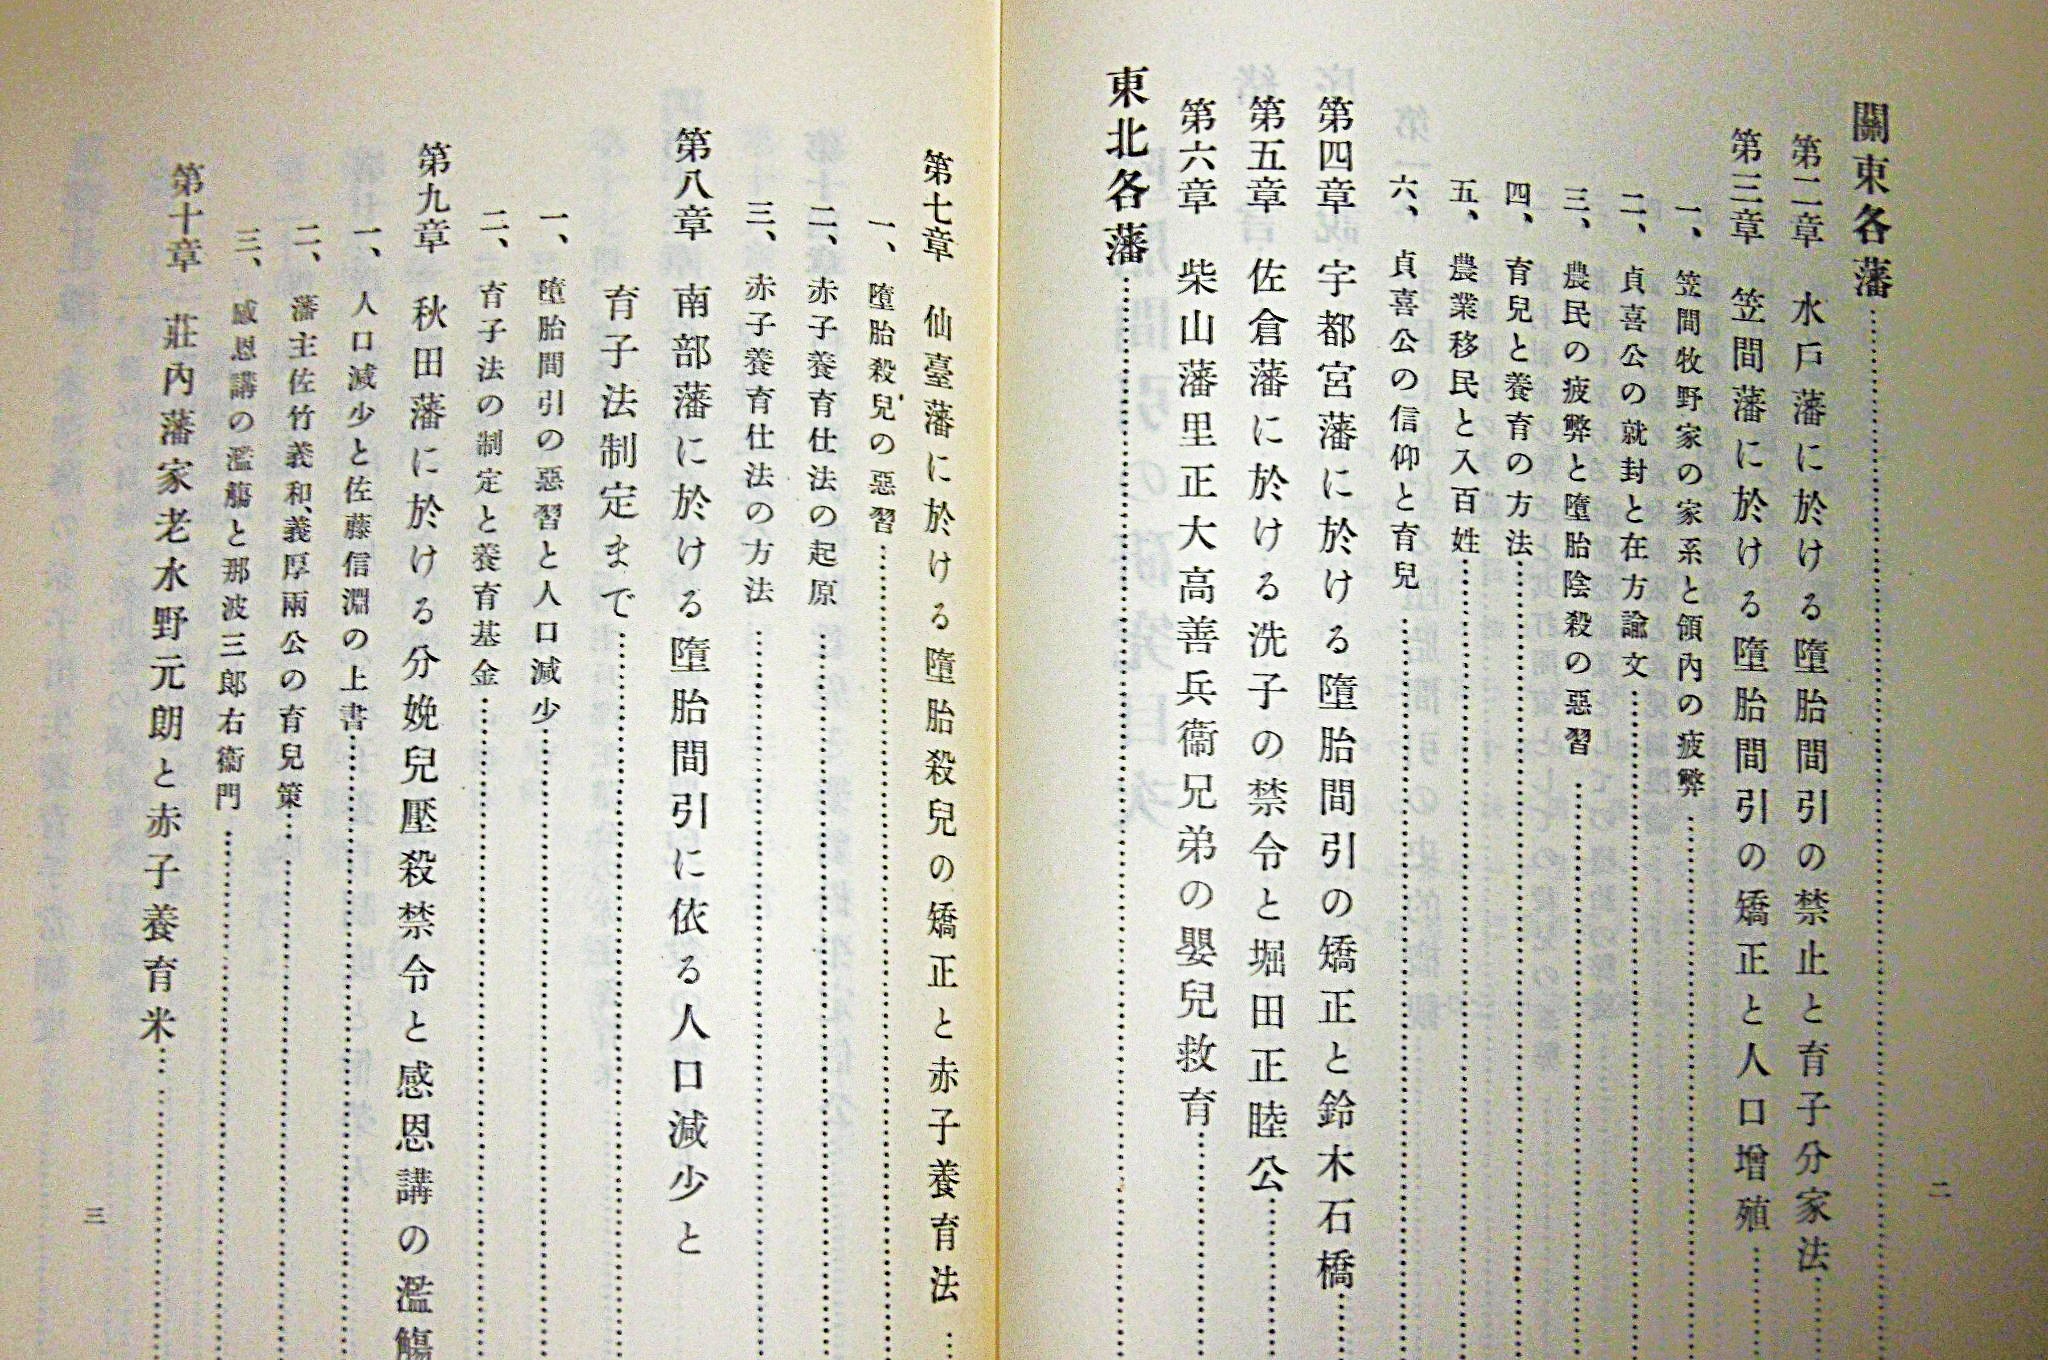 關東各藩
第二章 水戸藩に於ける墮胎間引の禁止と育子分家法
第三章 笠間藩に於ける墮胎間引の矯正と人口增殖
一、笠間牧野家の家系と領內の疲弊
二、貞喜公の就封と在方諭文
三、農民の疲弊と墮胎陰殺の惡習
四、育兒と養育の方法
五、農業移民と入百姓
六、貞喜公の信仰と育兒
第四章 宇都宮藩に於ける墮胎間引の矯正と鈴木石橋
第五章 佐倉藩に於ける洗子の禁令と堀田正睦公
第六章 柴山藩里正大高善兵衞兄弟の嬰兒救育
東北各藩
二
第七章 仙臺藩に於ける墮胎殺兒の矯正と赤子養育法
一、墮胎殺兒の惡習
二、赤子養育仕法の起原
三、赤子養育仕法の方法
第八章 南部藩に於ける墮胎間引に依る人口減少と
育子法制定まで
一、墮胎間引の惡習と人口減少
二、育子法の制定と養育基金
第九章 秋田藩に於ける分娩兒壓殺禁令と感恩講の濫觴
一、人口減少と佐藤信淵の上書
二、藩主佐竹義和、義厚兩公の育兒策
三、感恩講の濫觴と那波三郎右衞門
第十章 莊內藩家老水野元朗と赤子養育米
三